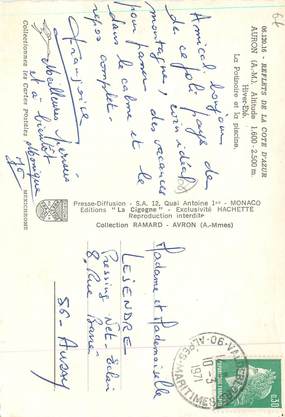 06.120.16 - REFLETS DE LA COTE D'AZUR
AURON (A.-M.) Altitude 1.600-2.500 m.
Hiver-Été.
La Patinoire et la piscine.
Amical bonjour
de ce joli pays de
montagne, des vacances
pour passer
dans le calme et le
repos complet.
Françoise
Meilleures pensées
et à bientôt
Monique
Collectionnez les Cartes Postales
MEXICHROME
Presse-Diffusion - S.A. 12, Quai Antoine 1er - MONACO
Editions "La Cigogne" - Exclusivité HACHETTE
Reproduction interdite
Collection RAMARD - AVRON (A.-Mmes)
Madame et Mademoiselle
LESENDRE
Pressing Net-Eclair
8, Rue
56 - Auray
ALPES MARITIMES
10-3
1971
0,30